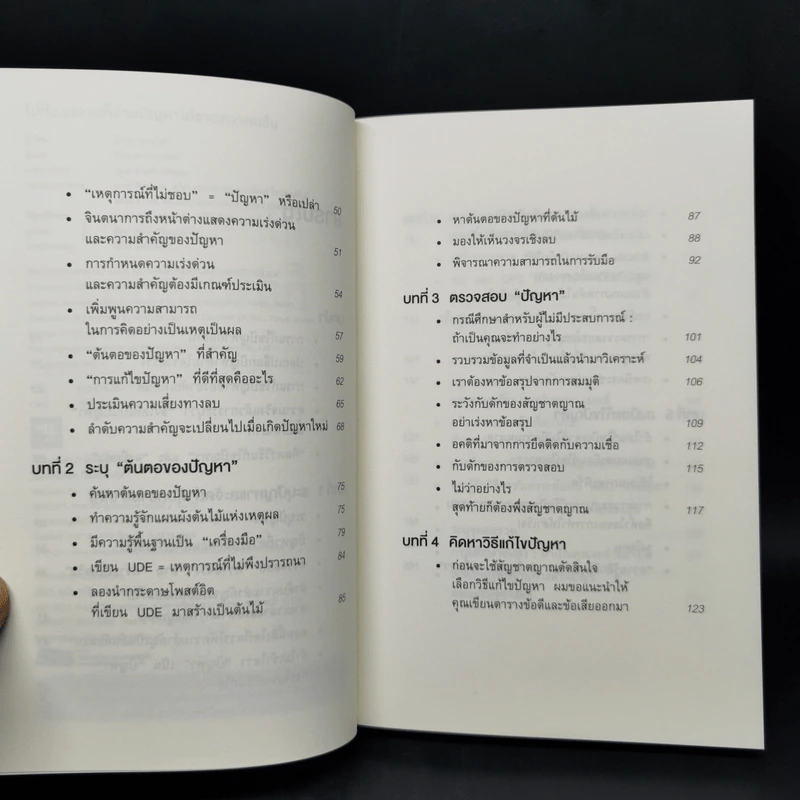 • "เหตุการณ์ที่ไม่ชอบ" = "ปัญหา" หรือเปล่า 50
• จินตนาการถึงหน้าต่างแสดงความเร่งด่วน
และความสำคัญของปัญหา 51
• การกำหนดความเร่งด่วน
และความสำคัญต้องมีเกณฑ์ประเมิน 54
• เพิ่มพูนความสามารถ
ในการคิดอย่างเป็นเหตุเป็นผล 57
• "ต้นตอของปัญหา" ที่สำคัญ 59
• "การแก้ไขปัญหา" ที่ดีที่สุดคืออะไร 62
• ประเมินความเสี่ยงทางลบ 65
• ลำดับความสำคัญจะเปลี่ยนไปเมื่อเกิดปัญหาใหม่ 68
บทที่ 2 ระบุ "ต้นตอของปัญหา"
• ค้นหาต้นตอของปัญหา 75
• ทำความรู้จักแผนผังต้นไม้แห่งเหตุผล 75
• มีความรู้พื้นฐานเป็น "เครื่องมือ" 79
• เขียน UDE = เหตุการณ์ที่ไม่พึงปรารถนา 84
• ลองนำกระดาษโพสต์อิต
ที่เขียน UDE มาสร้างเป็นต้นไม้ 85
• หาต้นตอของปัญหาที่ต้นไม้ 87
• มองให้เห็นวงจรเชิงลบ 88
• พิจารณาความสามารถในการรับมือ 92
บทที่ 3 ตรวจสอบ "ปัญหา"
• กรณีศึกษาสำหรับผู้ไม่มีประสบการณ์ :
ถ้าเป็นคุณจะทำอย่างไร 101
• รวบรวมข้อมูลที่จำเป็นแล้วนำมาวิเคราะห์ 104
• เราต้องหาข้อสรุปจากการสมมุติ 106
• ระวังกับดักของสัญชาตญาณ
อย่าเร่งหาข้อสรุป 109
• อคติที่มาจากการยึดติดกับความเชื่อ 112
• กับดักของการตรวจสอบ 115
• ไม่ว่าอย่างไร
สุดท้ายก็ต้องพึ่งสัญชาตญาณ 117
บทที่ 4 คิดหาวิธีแก้ไขปัญหา
• ก่อนจะใช้สัญชาตญาณตัดสินใจ
เลือกวิธีแก้ไขปัญหา ผมขอแนะนำให้
คุณเขียนตารางข้อดีและข้อเสียออกมา 123